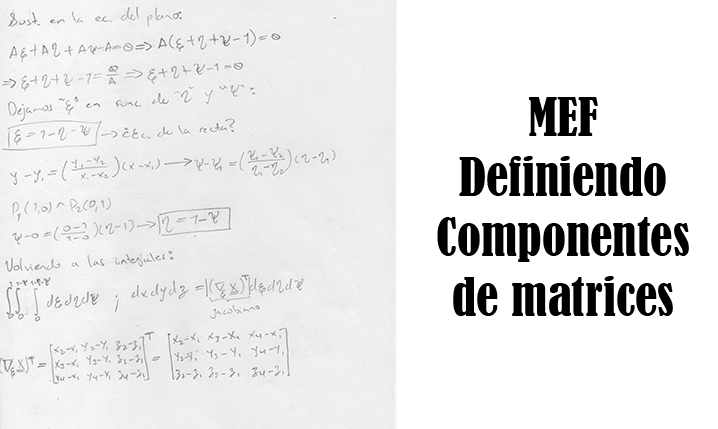 Sust. en la ec. del plano:
Aξ+Aη+Aψ-A=0 => A(ξ+η+ψ-1)=0
=> ξ+η+ψ-1=0/A => ξ+η+ψ-1=0
Dejamos "ξ" en func. de "η" y "ψ":
ξ=1-η-ψ → ¿Ec. de la recta?
y-y₁=((y₁-y₂)/(x₁-x₂))(x-x₁) → ψ-ψ₁=((ψ₁-ψ₂)/(η₁-η₂))(η-η₁)
P₁(1,0) ^ P₂(0,1)
ψ-0=((0-1)/(1-0))(η-1) → η=1-ψ
Volviendo a las integrales:
∫₀¹∫₀^(1-ψ)∫₀^(1-η-ψ) dξdηdψ ; dxdydz=|(∇ξ X)ᵀ|dξdηdψ
jacobiano
(∇ξ X)ᵀ=[x₂-x₁ y₂-y₁ z₂-z₁]ᵀ = [x₂-x₁ x₃-x₁ x₄-x₁]
[x₃-x₁ y₃-y₁ z₃-z₁] [y₂-y₁ y₃-y₁ y₄-y₁]
[x₄-x₁ y₄-y₁ z₄-z₁] [z₂-z₁ z₃-z₁ z₄-z₁]
MEF
Definiendo
Componentes
de matrices